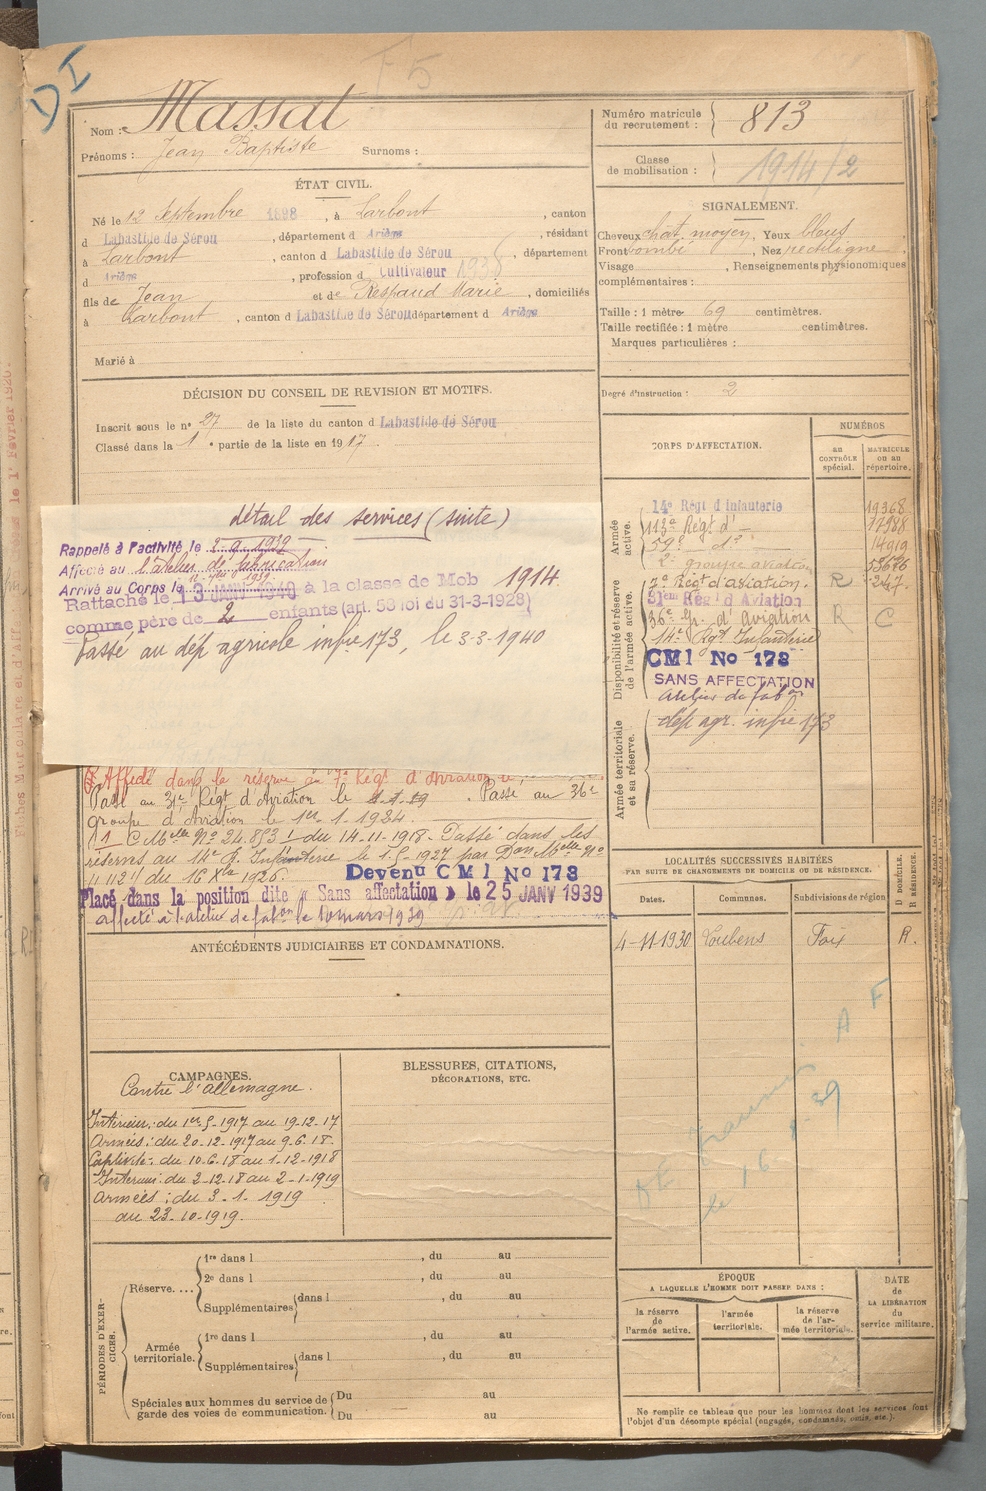 DI
F5
Nom : Massat
Prénoms : Jean Baptiste Surnoms :
Numéro matricule du recrutement : 813
Classe de mobilisation : 1914/2
ÉTAT CIVIL.
Né le 12 Septembre 1898, à Larbont, canton
d Labastide de Sérou, département d Ariège, résidant
à Larbont, canton d Labastide de Sérou, département
d Ariège, profession d Cultivateur
fils de Jean et de Respaud Marie, domiciliés
à Larbont, canton d Labastide de Sérou département d Ariège
Marié à
SIGNALEMENT.
Cheveux chat. moyen, Yeux bleus
Front bombé, Nez rectiligne
Visage , Renseignements physionomiques
complémentaires :
Taille : 1 mètre 69 centimètres.
Taille rectifiée : 1 mètre centimètres.
Marques particulières :
Degré d'instruction : 2
DÉCISION DU CONSEIL DE REVISION ET MOTIFS.
Inscrit sous le n° 27 de la liste du canton d Labastide de Sérou
Classé dans la 1e partie de la liste en 1917.
détail des services (suite)
Rappelé à l'activité le 2-9-1939
Affecté au l'atelier de fabrication
Arrivé au Corps le
Rattaché le 13 JANV 1940 à la classe de Mob 1914
comme père de 2 enfants (art. 58 loi du 31-3-1928)
Passé au dép agricole infie 173, le 3-3-1940
Affecté dans la réserve au 7e Régt d'Aviation
Passé au 31e Régt d'Aviation le . Passé au 36e
groupe d'Aviation le 1er-1.1934.
C. Melle No 24.853 du 14-11-1918. Passé dans les
réserves au 14e R. Infanterie le 1.5-1927 par Don Melle No
du 16 Xbre 1926. Devenu C M I No 173
Placé dans la position dite « Sans affectation » le 25 JANV 1939
affecté à l'atelier de fabon le 10 mars 1939
CORPS D'AFFECTATION.
NUMÉROS
au CONTRÔLE spécial.
MATRICULE ou au répertoire.
Armée active.
14e Régt d'Infanterie 19368
113e Régt d°
59e d°
2e groupe aviation
Disponibilité et réserve de l'armée active.
7e Régt d'aviation. R 247
31ème Régt d'Aviation
36e Gr. d'Aviation R C
14e Rgt Infanterie
CMI No 173
SANS AFFECTATION
Atelier de fabon
Armée territoriale et sa réserve.
dép agr. infie 173
LOCALITÉS SUCCESSIVES HABITÉES
PAR SUITE DE CHANGEMENTS DE DOMICILE OU DE RÉSIDENCE.
Dates. Communes. Subdivisions de région D DOMICILE. R RÉSIDENCE.
4-11-1930 Loubens Foix R.
ANTÉCÉDENTS JUDICIAIRES ET CONDAMNATIONS.
CAMPAGNES.
Contre l'Allemagne.
Intérieur : du 1er-5-1917 au 19-12-17
Armées : du 20-12-1917 au 9.6.18.
Captivité : du 10.6.18 au 1-12-1918
Intérieur : du 2-12-18 au 2-1-1919
Armées : du 3-1-1919
au 23-10-1919.
BLESSURES, CITATIONS,
DÉCORATIONS, ETC.
PÉRIODES D'EXERCICES.
Réserve.... 1re dans l , du au
2e dans l , du au
Supplémentaires dans l , du au
Armée territoriale. 1re dans l , du au
Supplémentaires dans l , du au
Spéciales aux hommes du service de garde des voies de communication. Du au
Du au
ÉPOQUE
A LAQUELLE L'HOMME DOIT PASSER DANS :
la réserve de l'armée active.
l'armée territoriale.
la réserve de l'armée territoriale.
DATE DE LA LIBÉRATION du service militaire.
Ne remplir ce tableau que pour les hommes dont les services font
l'objet d'un décompte spécial (engagés, condamnés, omis, etc.).